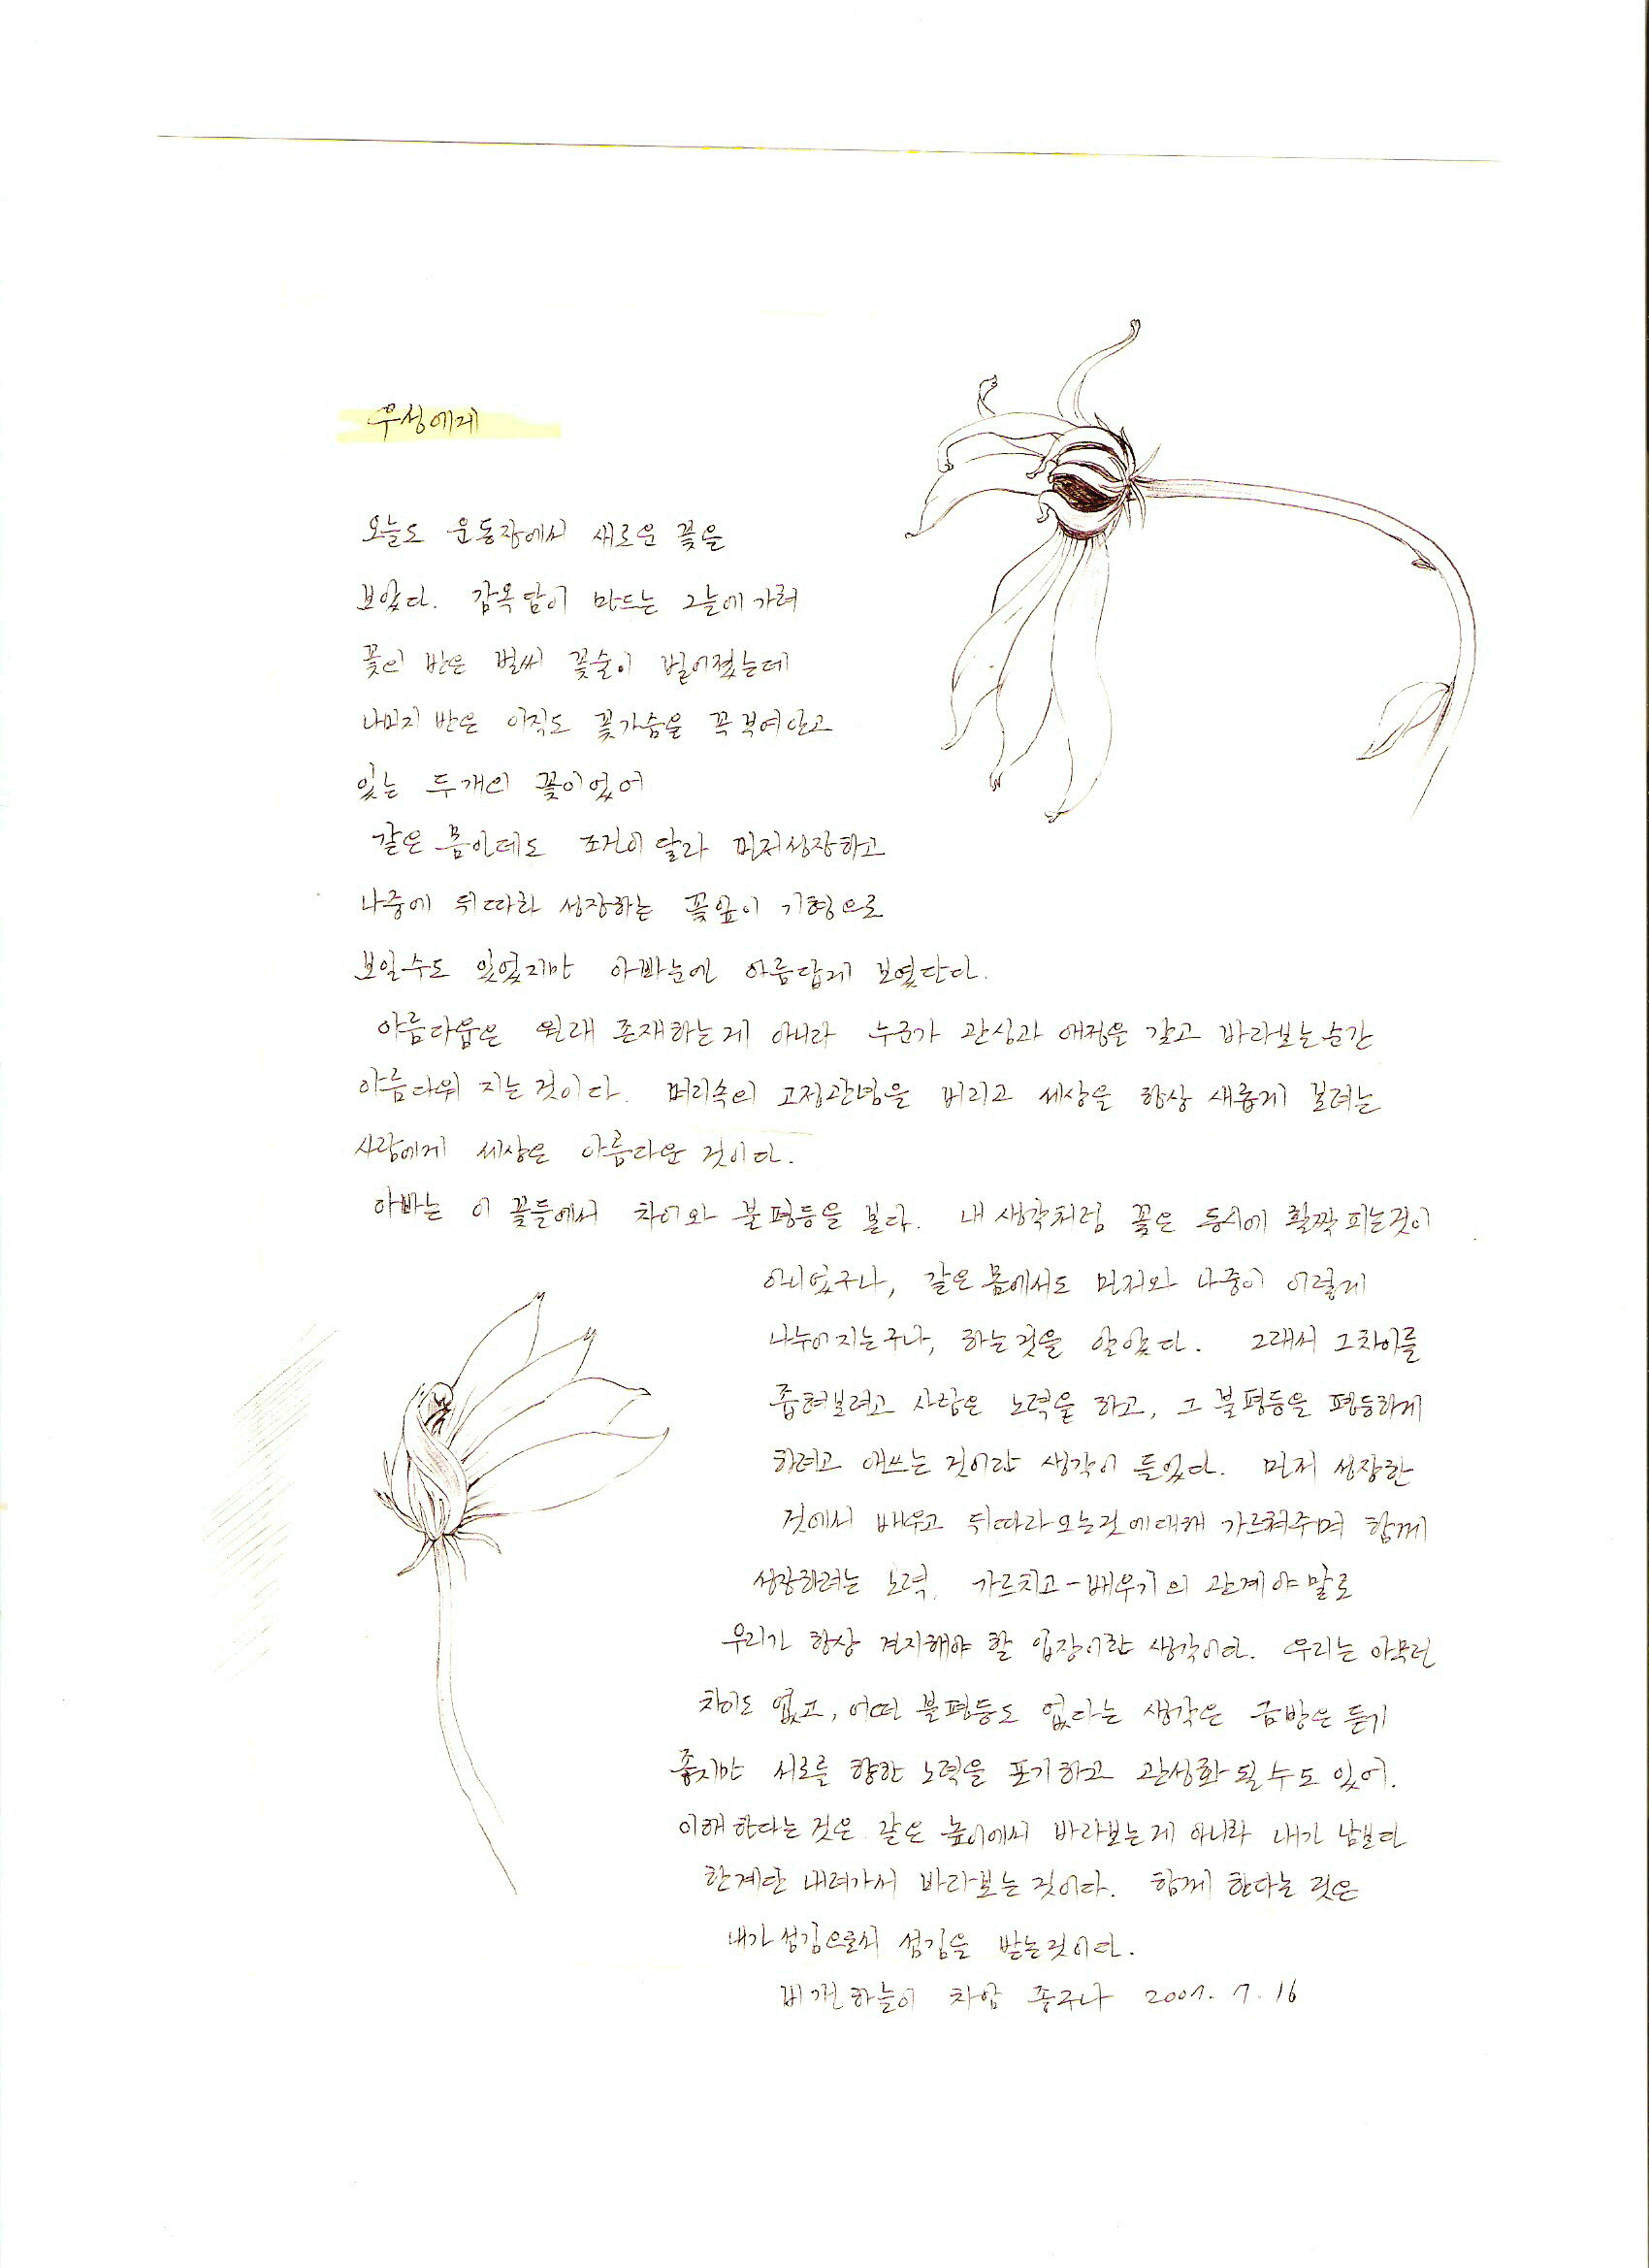 우성에게
오늘도 운동장에서 새로운 꽃을
보았다. 감옥담이 만드는 그늘에 가려
꽃의 반은 벌써 꽃술이 벌어졌는데
나머지 반은 아직도 꽃가슴을 꼭 부여안고
있는 두개의 꽃이었어
같은 몸인데도 조건이 달라 먼저성장하고
나중에 뒤따라 성장하는 꽃잎이 기형으로
보일수도 있었지만 아빠눈엔 아름답게 보였단다.
아름다움은 원래 존재하는게 아니라 누군가 관심과 애정을 갖고 바라보는순간
아름다워 지는것이다. 머리속의 고정관념을 버리고 세상을 항상 새롭게 보려는
사람에게 세상은 아름다운 것이다.
아빠는 이 꽃들에서 차이와 불평등을 본다. 내 생각처럼 꽃은 동시에 활짝 피는것이
아니었구나, 같은 몸에서도 먼저와 나중이 이렇게
나누어지는구나, 하는것을 알았다. 그래서 그차이를
좁혀보려고 사람은 노력을 하고, 그 불평등을 평등하게
하려고 애쓰는 것이란 생각이 들었다. 먼저 성장한
것에서 배우고 뒤따라오는것에대해 가르쳐주며 함께
성장하려는 노력. 가르치고-배우기의 관계야말로
우리가 항상 견지해야 할 입장이란 생각이다. 우리는 아무런
차이도 없고, 어떤 불평등도 없다는 생각은 금방은 듣기
좋지만 서로를 향한 노력을 포기하고 관성화 될수도 있어.
이해한다는 것은 같은 높이에서 바라보는게 아니라 내가 남보다
한계단 내려가서 바라보는것이다. 함께 한다는 것은
내가 섬김으로써 섬김을 받는것이다.
비갠하늘이 차암 좋구나 2007. 7. 16